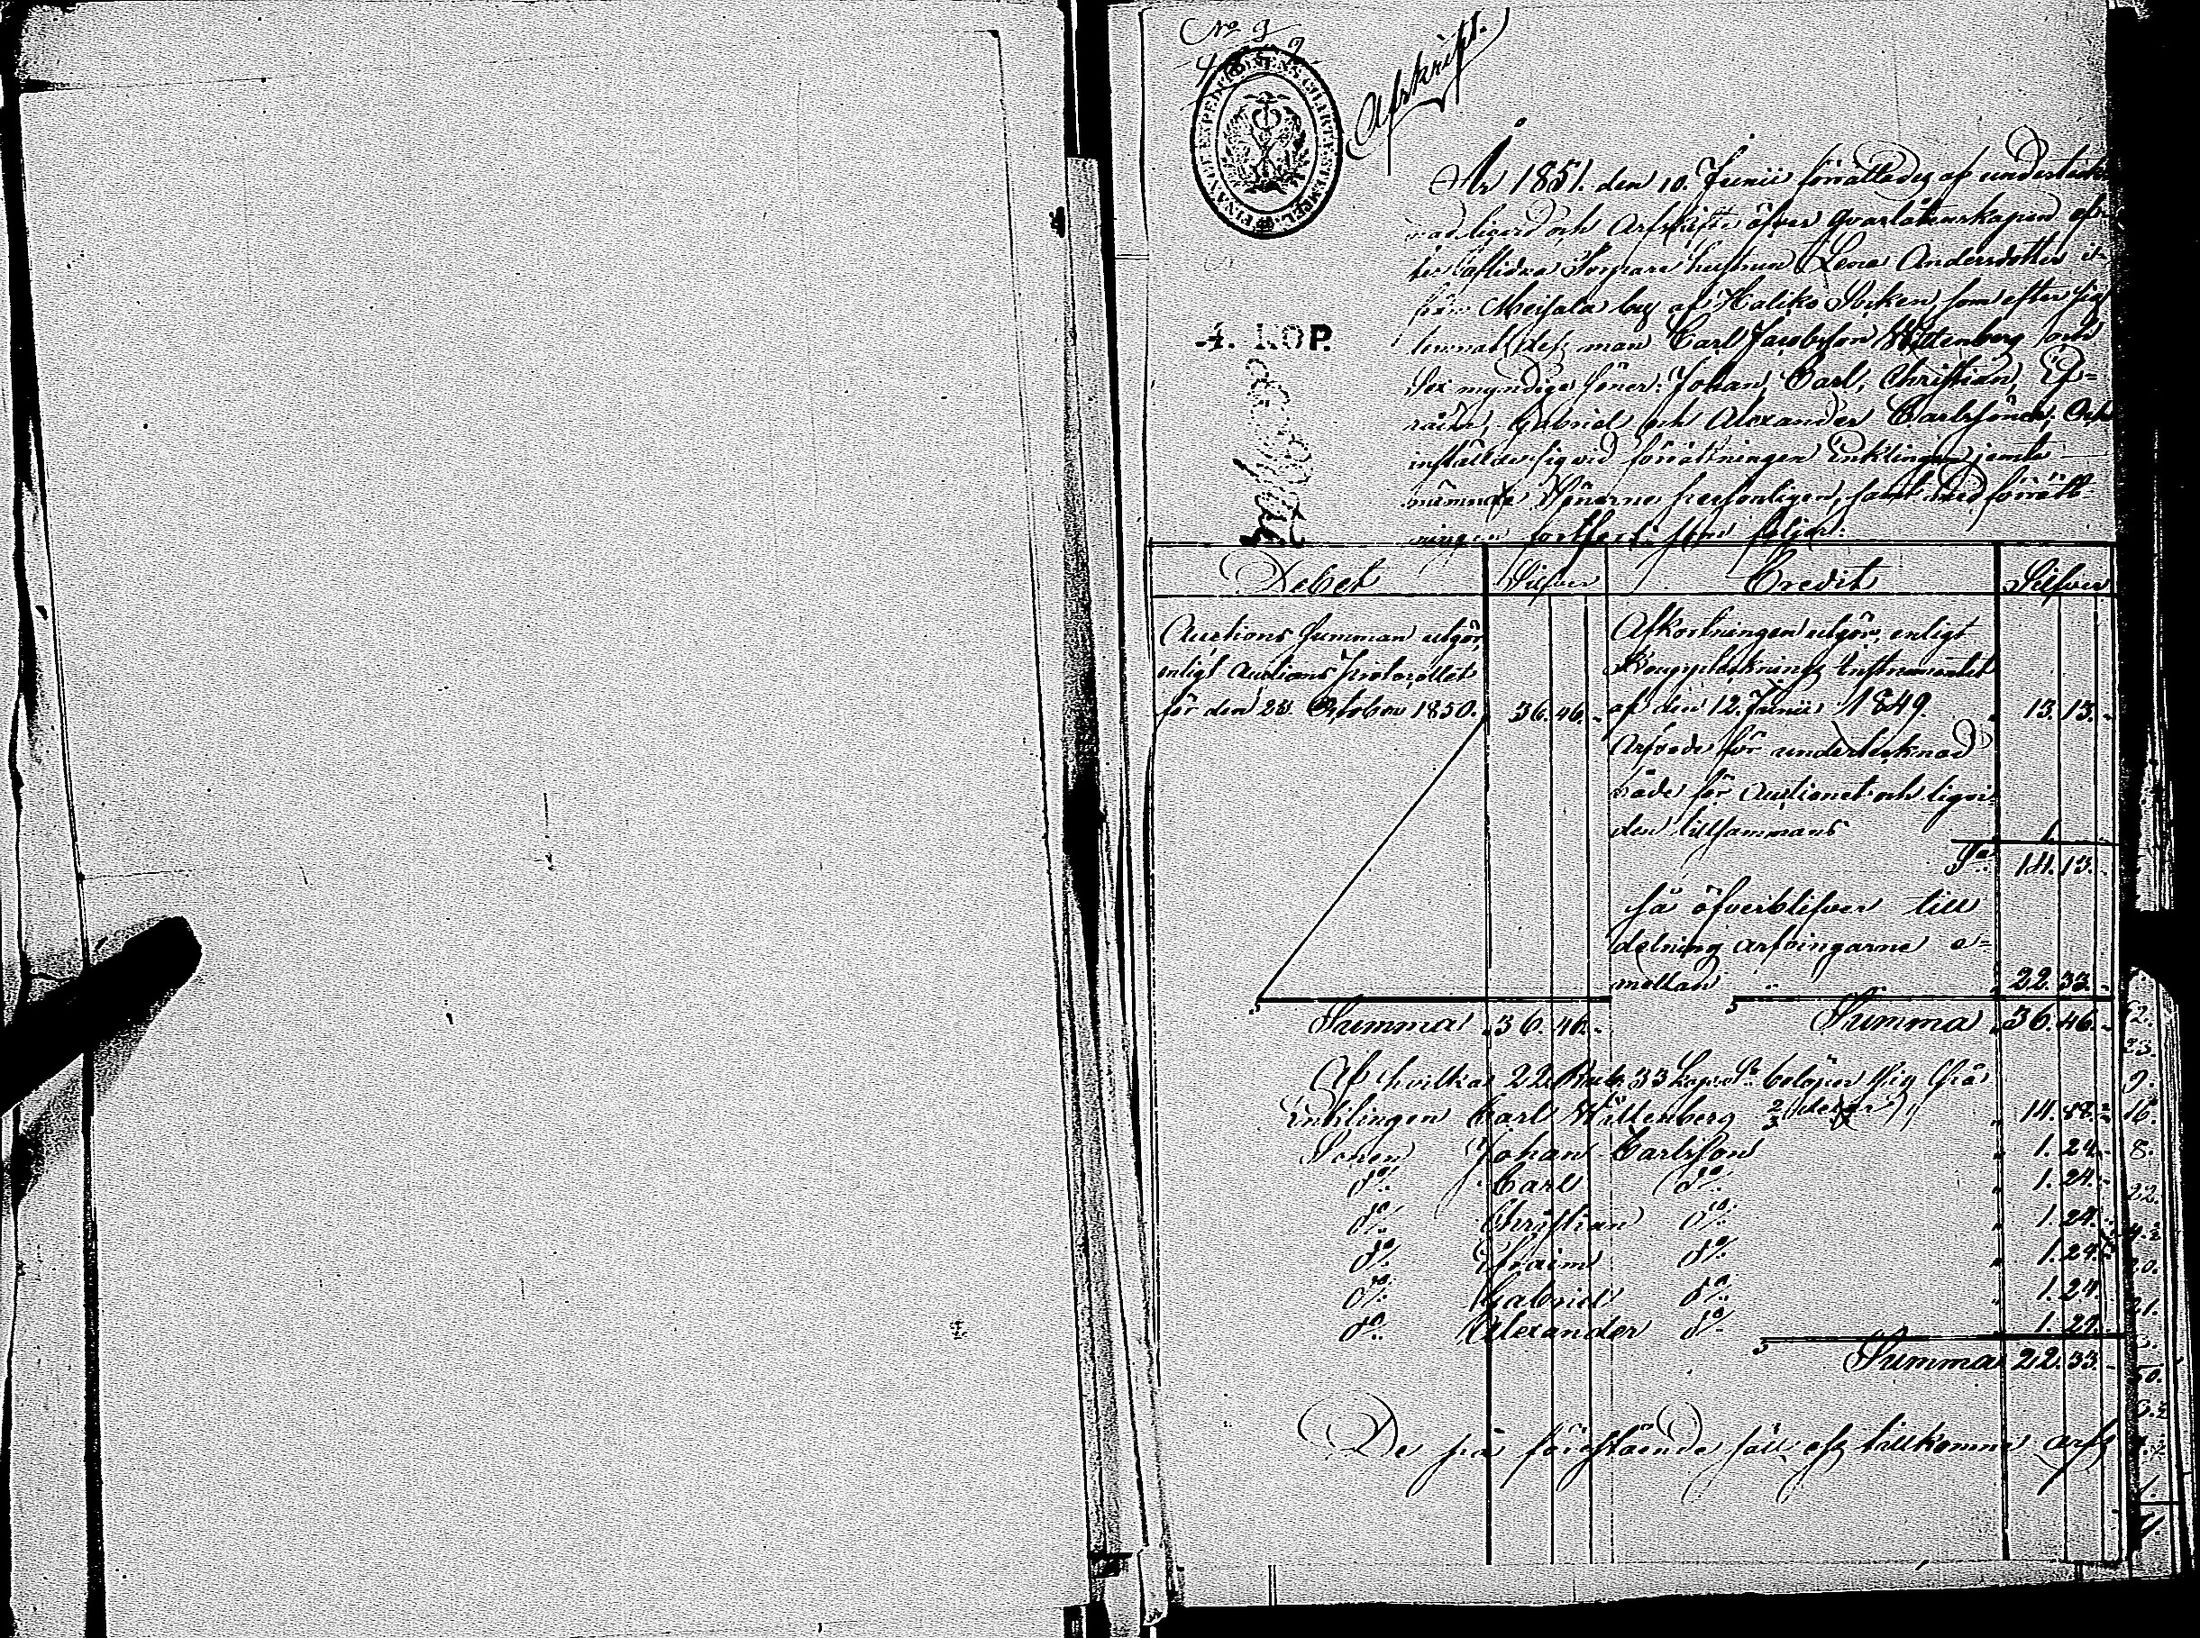 No 9
Afskrift.
FINANCE EXPEDITIONENS CHARTÆ STEMPEL
4. KOP.
År 1851. den 10. Junii förrättades af underteck-
nad liqvid och Arfskifte öfver qvarlåtenskapen ef-
ter aflidna Torpare hustrun Lena Andersdotter i-
från Meisala by af Haliko Socken, som efter sig
lemnat dess man Carl Jacobsson Wittenberg och
Sex myndige söner: Johan, Carl, Christian, Ef-
raim, Gabriel och Alexander Carlssöner; Och
inställde sig vid förrättningen Enklingen jemte
nämnde Sönerne personligen, samt med förrätt-
ningen fortfors som följer:
Debet Silfver Credit Silfver
Auctions Summan utgör,
enligt Auctions Protocollet
för den 23 October 1850. 36.46.
Afkortningen utgör, enligt
Bouppteknings Instrumentet
af den 12. Junii 1849. 13.13.
Arfvode för undertecknad
både för Auctionet och liqvi-
den tillsammans 1.
Sa 14.13.
så öfverblifver till
delning arfvingarne e-
mellan 22.33.
Summa 36.46. Summa 36.46.
Af hvilka 22 Rub. 33 Kop. Sr belöper sig på
Enklingen Carl Wittenberg 2/3 delar 14.88.
Sonen Johan Carlsson 1.24.
do Carl do 1.24.
do Christian do 1.24.
do Efraim do 1.24.
do Gabriel do 1.24.
do Alexander do 1.24.
Summa 22.33.
De på förestående sätt tillkomne arfs